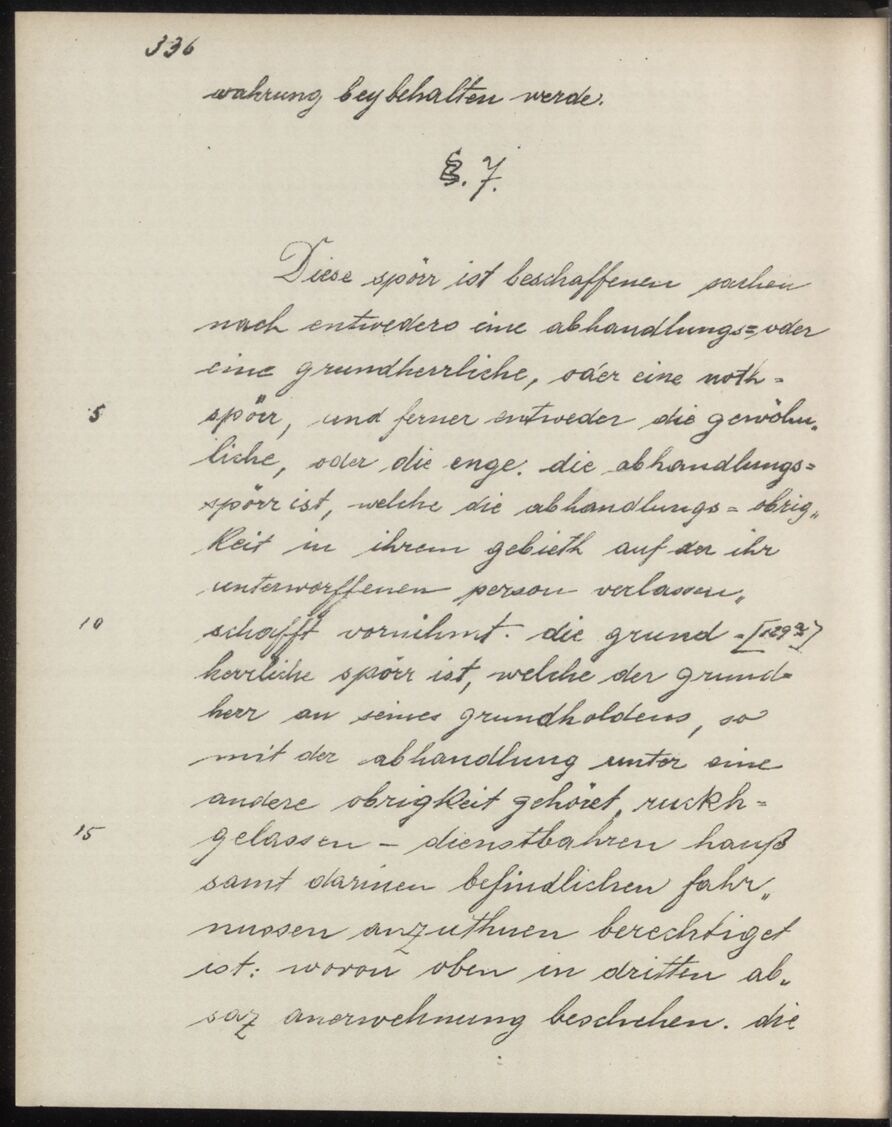 336
wahrung beybehalten werde.
§. 7.
Diese spörr ist beschaffenen sachen
nach entweders eine abhandlungs= oder
eine grundherrliche, oder eine noth=
5 spörr, und ferner entweder die gewöhn„
liche, oder die enge. die abhandlungs=
spörr ist, welche die abhandlungs= obrig„
keit in ihrem gebieth auf der ihr
unterworffenen person verlassen„
10 schafft vornihmt. die grund=[129a]
herrliche spörr ist, welche der grund=
herr an seines grundholdens, so
mit der abhandlung unter eine
andere obrigkeit gehöret, ruckh=
15 gelassen – dienstbahren hauß
samt darinen befindlichen fahr„
nussen anzuthuen berechtiget
ist: wovon oben in dritten ab„
saz anerwehnung beschehen. die